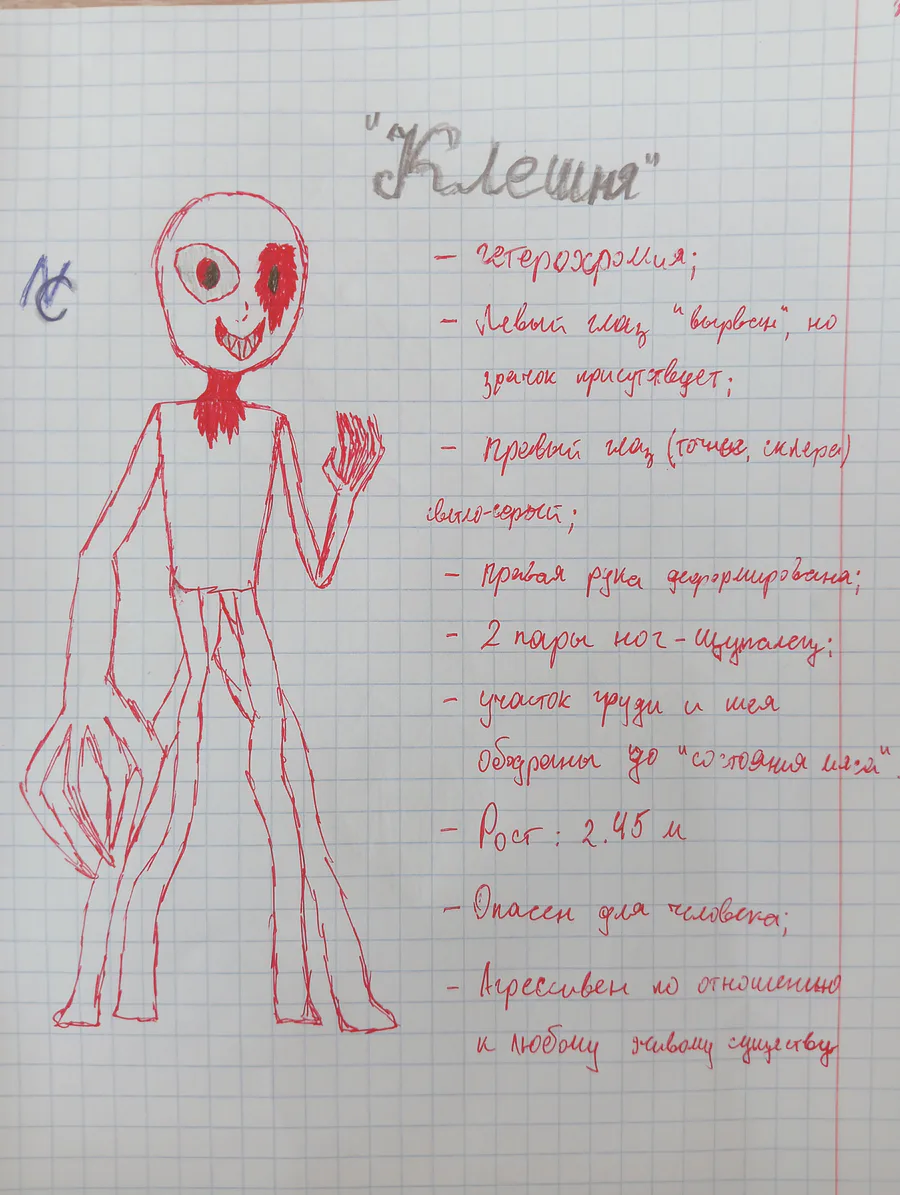 "Клешня"
NC
- гетерохромия;
- Левый глаз "вырван", но
зрачок присутствует;
- правый глаз (точнее, склера)
светло-серый;
- правая рука деформирована;
- 2 пары ног-щупалец;
- участок груди и шея
ободраны до "состояния мяса".
- Рост: 2.45 м
- Опасен для человека;
- Агрессивен по отношению
к любому живому существу